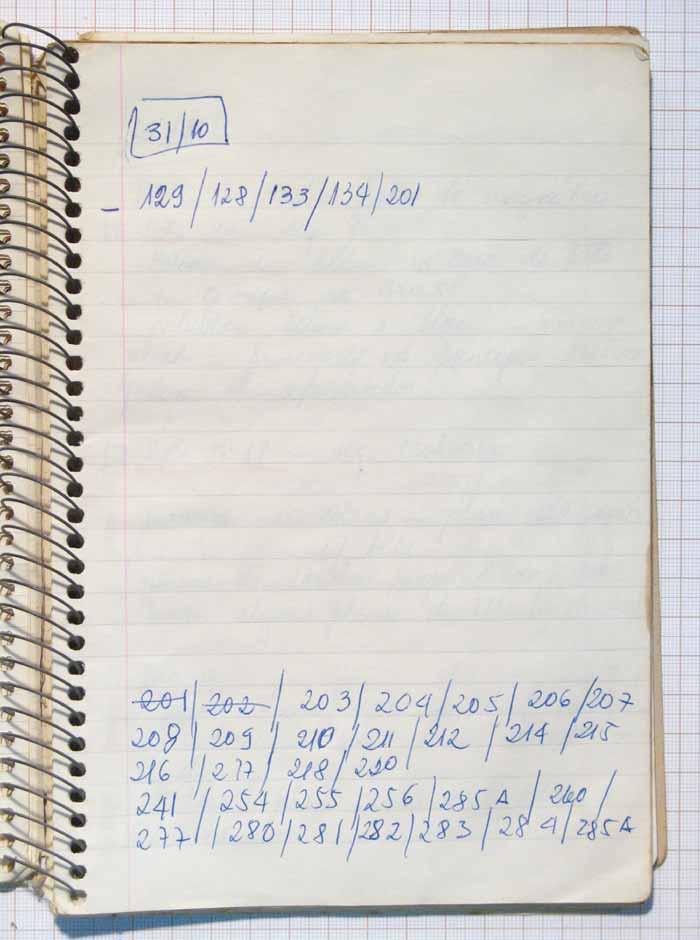 31/10
- 129/128/133/134/201
201/202/203/204/205/206/207
208/209/210/211/212/214/215
216/217/218/220
241/254/255/256/285A/260/
277/280/281/282/283/284/285A